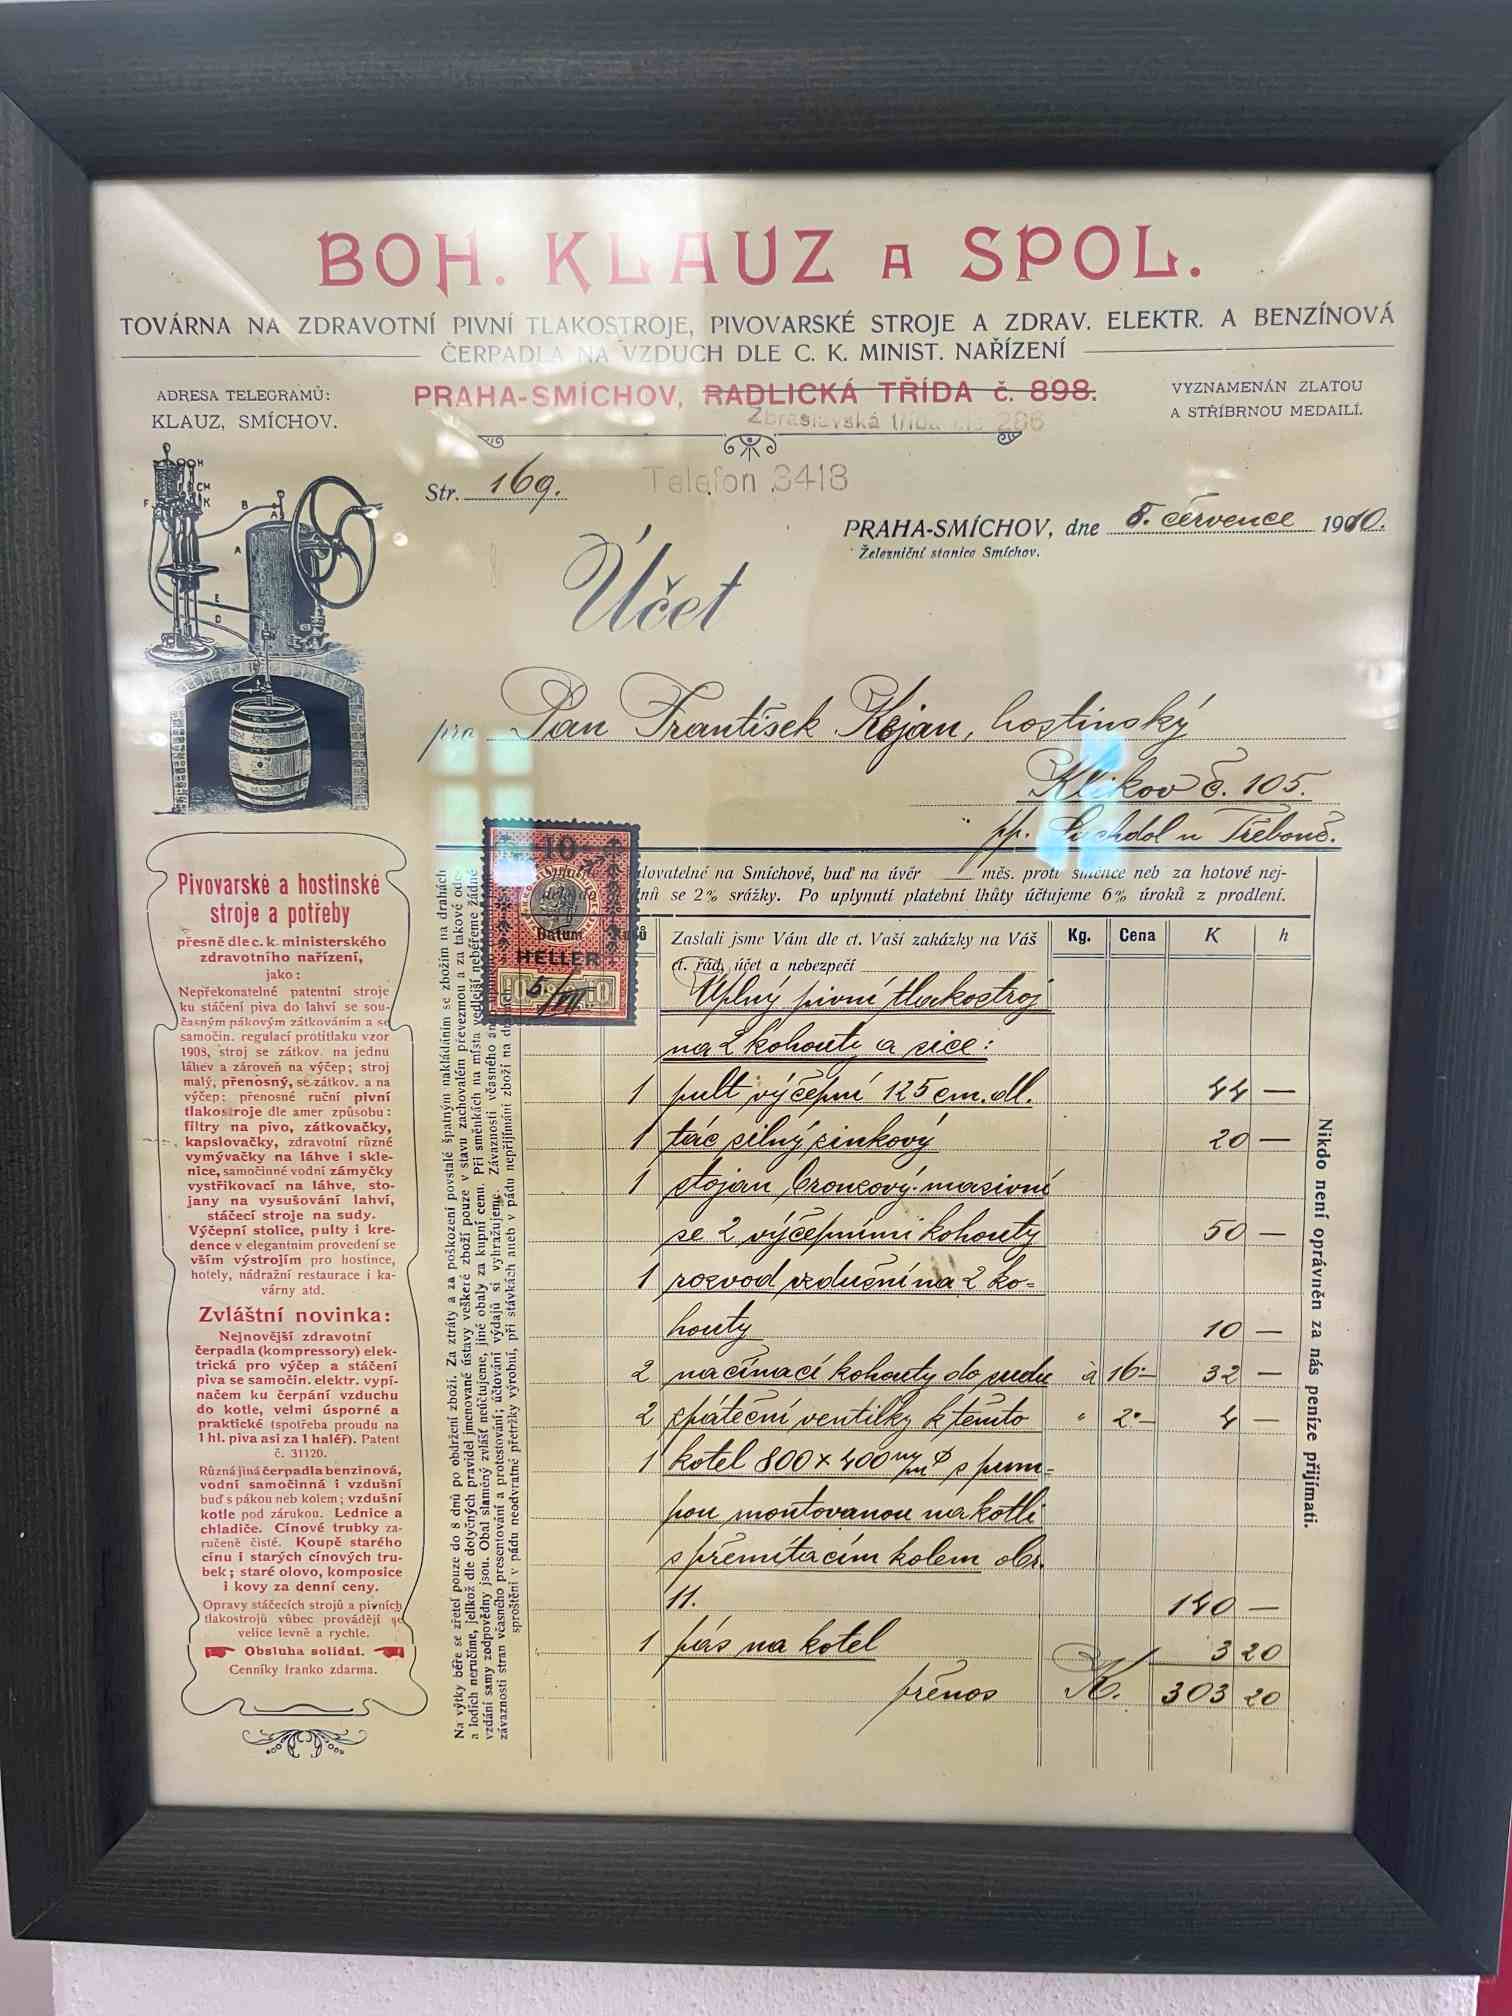 BOH. KLAUZ A SPOL.
TOVÁRNA NA ZDRAVOTNÍ PIVNÍ TLAKOSTROJE, PIVOVARSKÉ STROJE A ZDRAV. ELEKTR. A BENZÍNOVÁ
ČERPADLA NA VZDUCH DLE C. K. MINIST. NAŘÍZENÍ
ADRESA TELEGRAMŮ:
KLAUZ, SMÍCHOV.
PRAHA-SMÍCHOV, RADLICKÁ TŘÍDA č. 898.
Zbraslavská třída 286
VYZNAMENÁN ZLATOU
A STŘÍBRNOU MEDAILÍ.
Str. 169.
Telefon 3418
PRAHA-SMÍCHOV, dne 5. července 1910.
Železniční stanice Smíchov.
Účet
pro Pan František Kejan, hostinský
Klikov č. 105.
pp. Suchdol u Třeboně.
Pivovarské a hostinské
stroje a potřeby
přesně dle c. k. ministerského
zdravotního nařízení,
jako:
Nepřekonatelné patentní stroje
ku stáčení piva do lahví se sou-
časným pákovým zátkováním a se
samočin. regulací protitlaku vzor
1908, stroj se zátkov. na jednu
láhev a zároveň na výčep; stroj
malý, přenosný, se zátkov. a na
výčep; přenosné ruční pivní
tlakostroje dle amer způsobu:
filtry na pivo, zátkovačky,
kapslovačky, zdravotní různé
vymývačky na láhve i skle-
nice, samočinné vodní zámyčky
vystřikovací na láhve, sto-
jany na vysušování lahví,
stáčecí stroje na sudy.
Výčepní stolice, pulty i kre-
dence v elegantním provedení se
vším výstrojím pro hostince,
hotely, nádražní restaurace i ka-
várny atd.
Zvláštní novinka:
Nejnovější zdravotní
čerpadla (kompressory) elek-
trická pro výčep a stáčení
piva se samočin. elektr. vypí-
načem ku čerpání vzduchu
do kotle, velmi úsporné a
praktické (spotřeba proudu na
1 hl. piva asi za 1 haléř). Patent
č. 31120.
Různá jiná čerpadla benzinová,
vodní samočinná i vzdušní
buď s pákou neb kolem; vzdušní
kotle pod zárukou. Lednice a
chladiče. Cínové trubky za-
ručeně čisté. Koupě starého
cínu i starých cínových tru-
bek; staré olovo, komposice
i kovy za denní ceny.
Opravy stáčecích strojů a pivních
tlakostrojů vůbec provádějí se
velice levně a rychle.
Obsluha solidní.
Cenníky franko zdarma.
Na výtky béře se zřetel pouze do 8 dnů po obdržení zboží. Za ztráty a za poškození povstalé špatným nakládáním se zbožím na drahách
a lodích neručíme, jelikož dle dotyčných pravidel jmenované ústavy veškeré zboží pouze v stavu zachovalém převezmou a za takové ode-
vzdání samy zodpovědny jsou. Obal slaměný zvlášť neúčtujeme, jiné obaly za kupní cenu. Při směnkách na místa vedlejší neběřeme žádné
závaznosti stran včasného presentování a protestování; účtování výdajů si vyhražujeme. Závaznosti včasného
sproštěni v pádu neodvratné přetržky výrobní, při stávkách aneb v pádu nepřijímání zboží na
10
Datum
HELLER
10 10
5/VII.
lovatelné na Smíchově, buď na úvěr měs. proti směnce neb za hotové nej-
dnů se 2% srážky. Po uplynutí platební lhůty účtujeme 6% úroků z prodlení.
Zaslali jsme Vám dle ct. Vaší zakázky na Váš Kg. Cena K h
ct. řád, účet a nebezpečí
Úplný pivní tlakostroj
na 2 kohouty a sice:
1 pult výčepní 125 cm. dl. 44 —
1 tác silný zinkový 20 —
1 stojan bronzový masivní
se 2 výčepními kohouty 50 —
1 rozvod vzdušní na 2 ko-
houty 10 —
2 načínací kohouty do sudu à 16·— 32 —
2 zpáteční ventilky k těmto " 2·— 4 —
1 kotel 800 x 400 m/m ø s pum-
pou montovanou na kotli
s přemítacím kolem obr.
11. 140 —
1 pás na kotel 3 20
přenos K. 303 20
Nikdo není oprávněn za nás peníze přijímati.